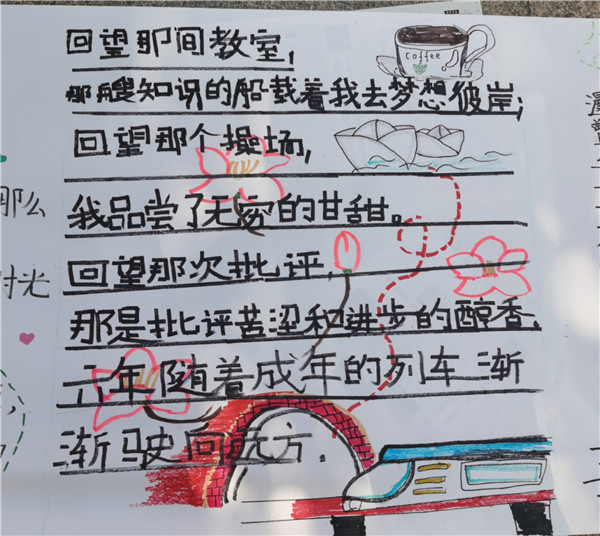 回望那间教室,
coffee
那艘知识的船载着我去梦想彼岸;
回望那个操场,
我品尝了无穷的甘甜。
回望那次批评,
那是批评苦涩和进步的醇香.
六年随着成年的列车渐
渐驶向远方.
那么
时光